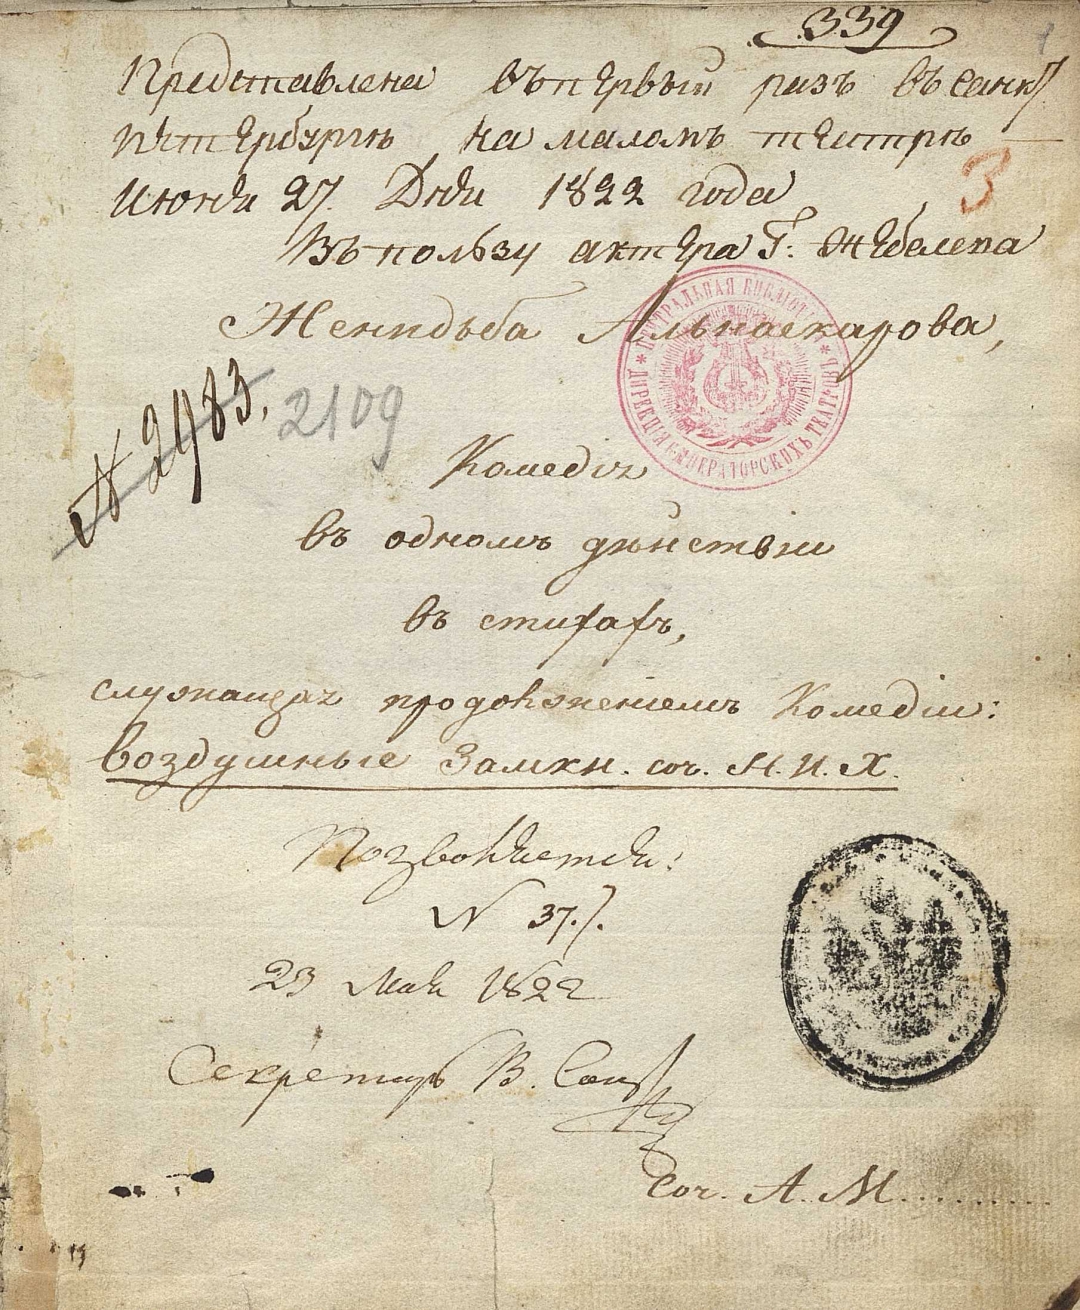 339
Представлена въ первый разъ въ Санкт
Петербургѣ на маломъ театрѣ
Июня 27 Дня 1822 года
Въ пользу актера Г: Жебелева
3
Женидьба Альнаскарова,
ЦЕНТРАЛЬНАЯ БИБЛІОТЕКА * ДИРЕКЦІЯ ИМПЕРАТОРСКИХЪ ТЕАТРОВЪ *
N 2983. 2109
Комедія
въ одномъ дѣйствіи
въ стихахъ,
служащая продолженіемъ Комедіи:
Воздушные Замки. соч. Н. И. Х.
Позволяется:
N 37.
23 Мая 1822
Секретарь В.
Соч. А. М..........